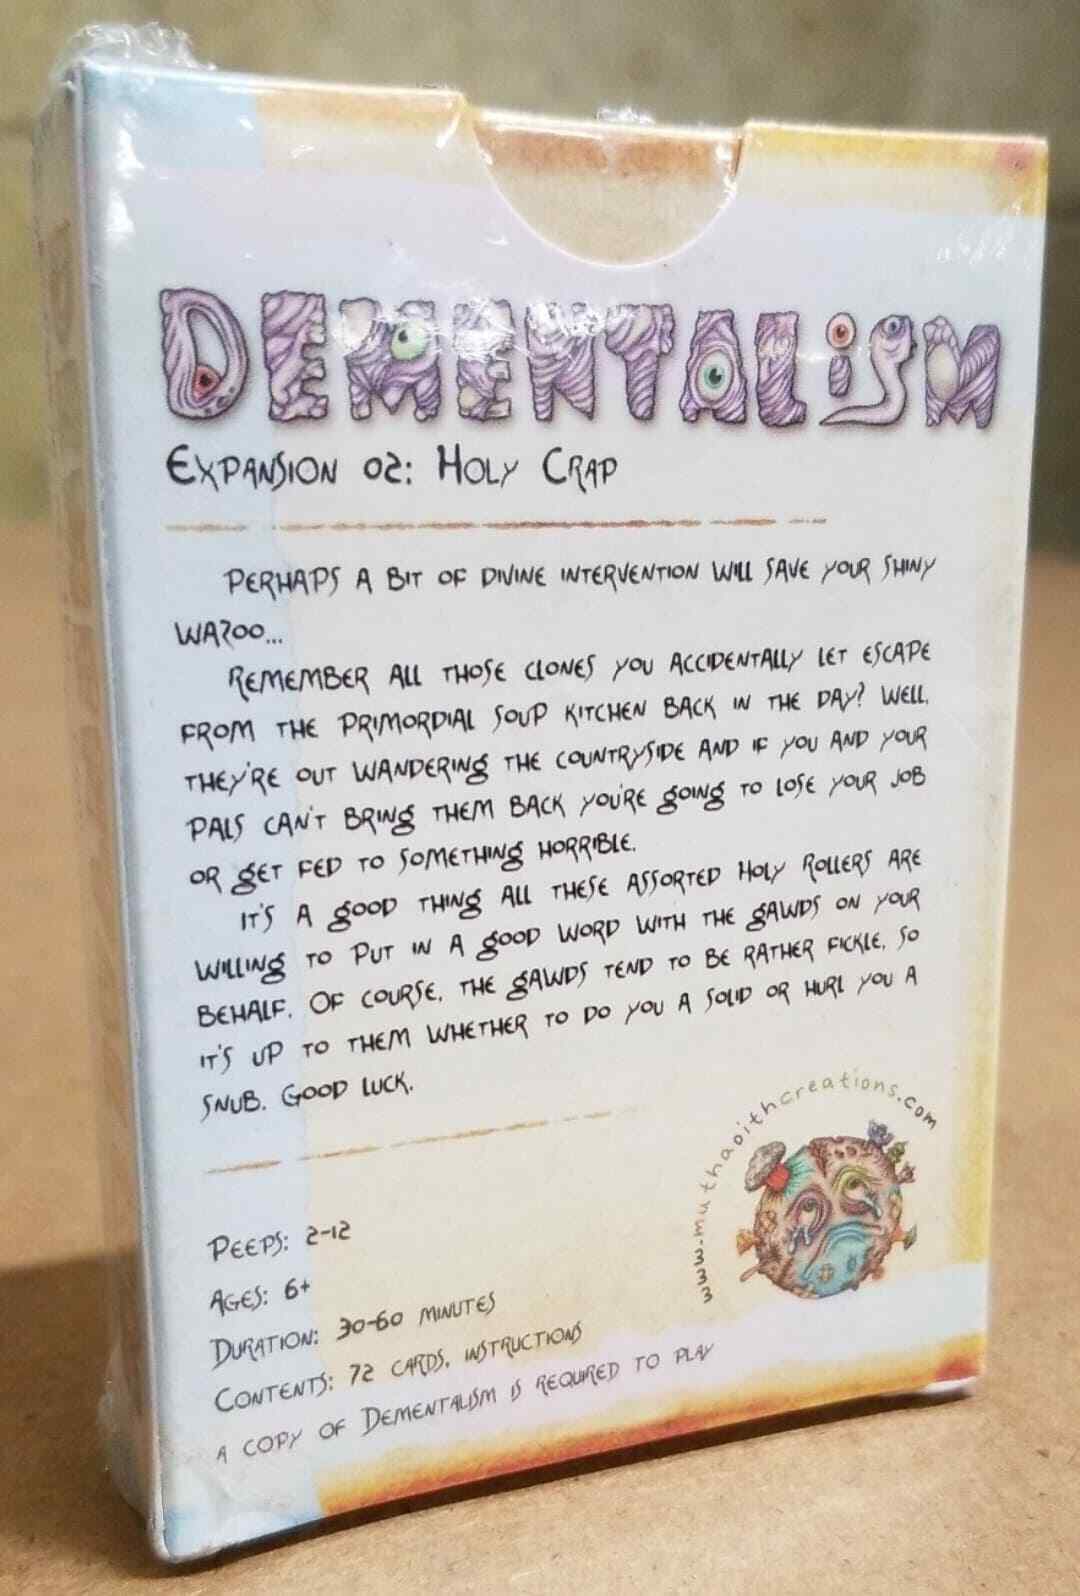 DEMENTALiSM
Expansion 02: Holy Crap
Perhaps a bit of divine intervention will save your shiny
wazoo...
Remember all those clones you accidentally let escape
from the Primordial Soup Kitchen back in the day? Well,
they're out wandering the countryside and if you and your
pals can't bring them back you're going to lose your job
or get fed to something horrible.
It's a good thing all these assorted Holy Rollers are
willing to put in a good word with the gawds on your
behalf. Of course, the gawds tend to be rather fickle, so
it's up to them whether to do you a solid or hurl you a
snub. Good luck.
www.muthaoithcreations.com
Peeps: 2-12
Ages: 6+
Duration: 30-60 minutes
Contents: 72 cards, instructions
a copy of Dementalism is required to play